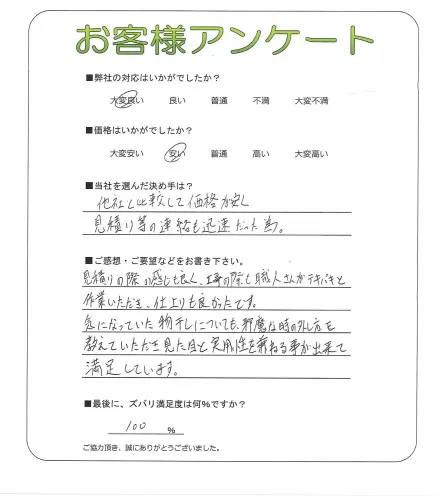 お客様アンケート
■弊社の対応はいかがでしたか？
大変良い 良い 普通 不満 大変不満
■価格はいかがでしたか？
大変安い 安い 普通 高い 大変高い
■当社を選んだ決め手は？
他社と比較して価格が安く
見積り等の連絡も迅速だった為。
■ご感想・ご要望などをお書き下さい。
見積りの際の感じも良く、工事の際も職人さんがテキパキと
作業いただき、仕上りも良かったです。
気になっていた物干しについても、邪魔な時の外し方を
教えていただき見た目と実用性を兼ねる事が出来て
満足しています。
■最後に、ズバリ満足度は何％ですか？
100 ％
ご協力頂き、誠にありがとうございました。